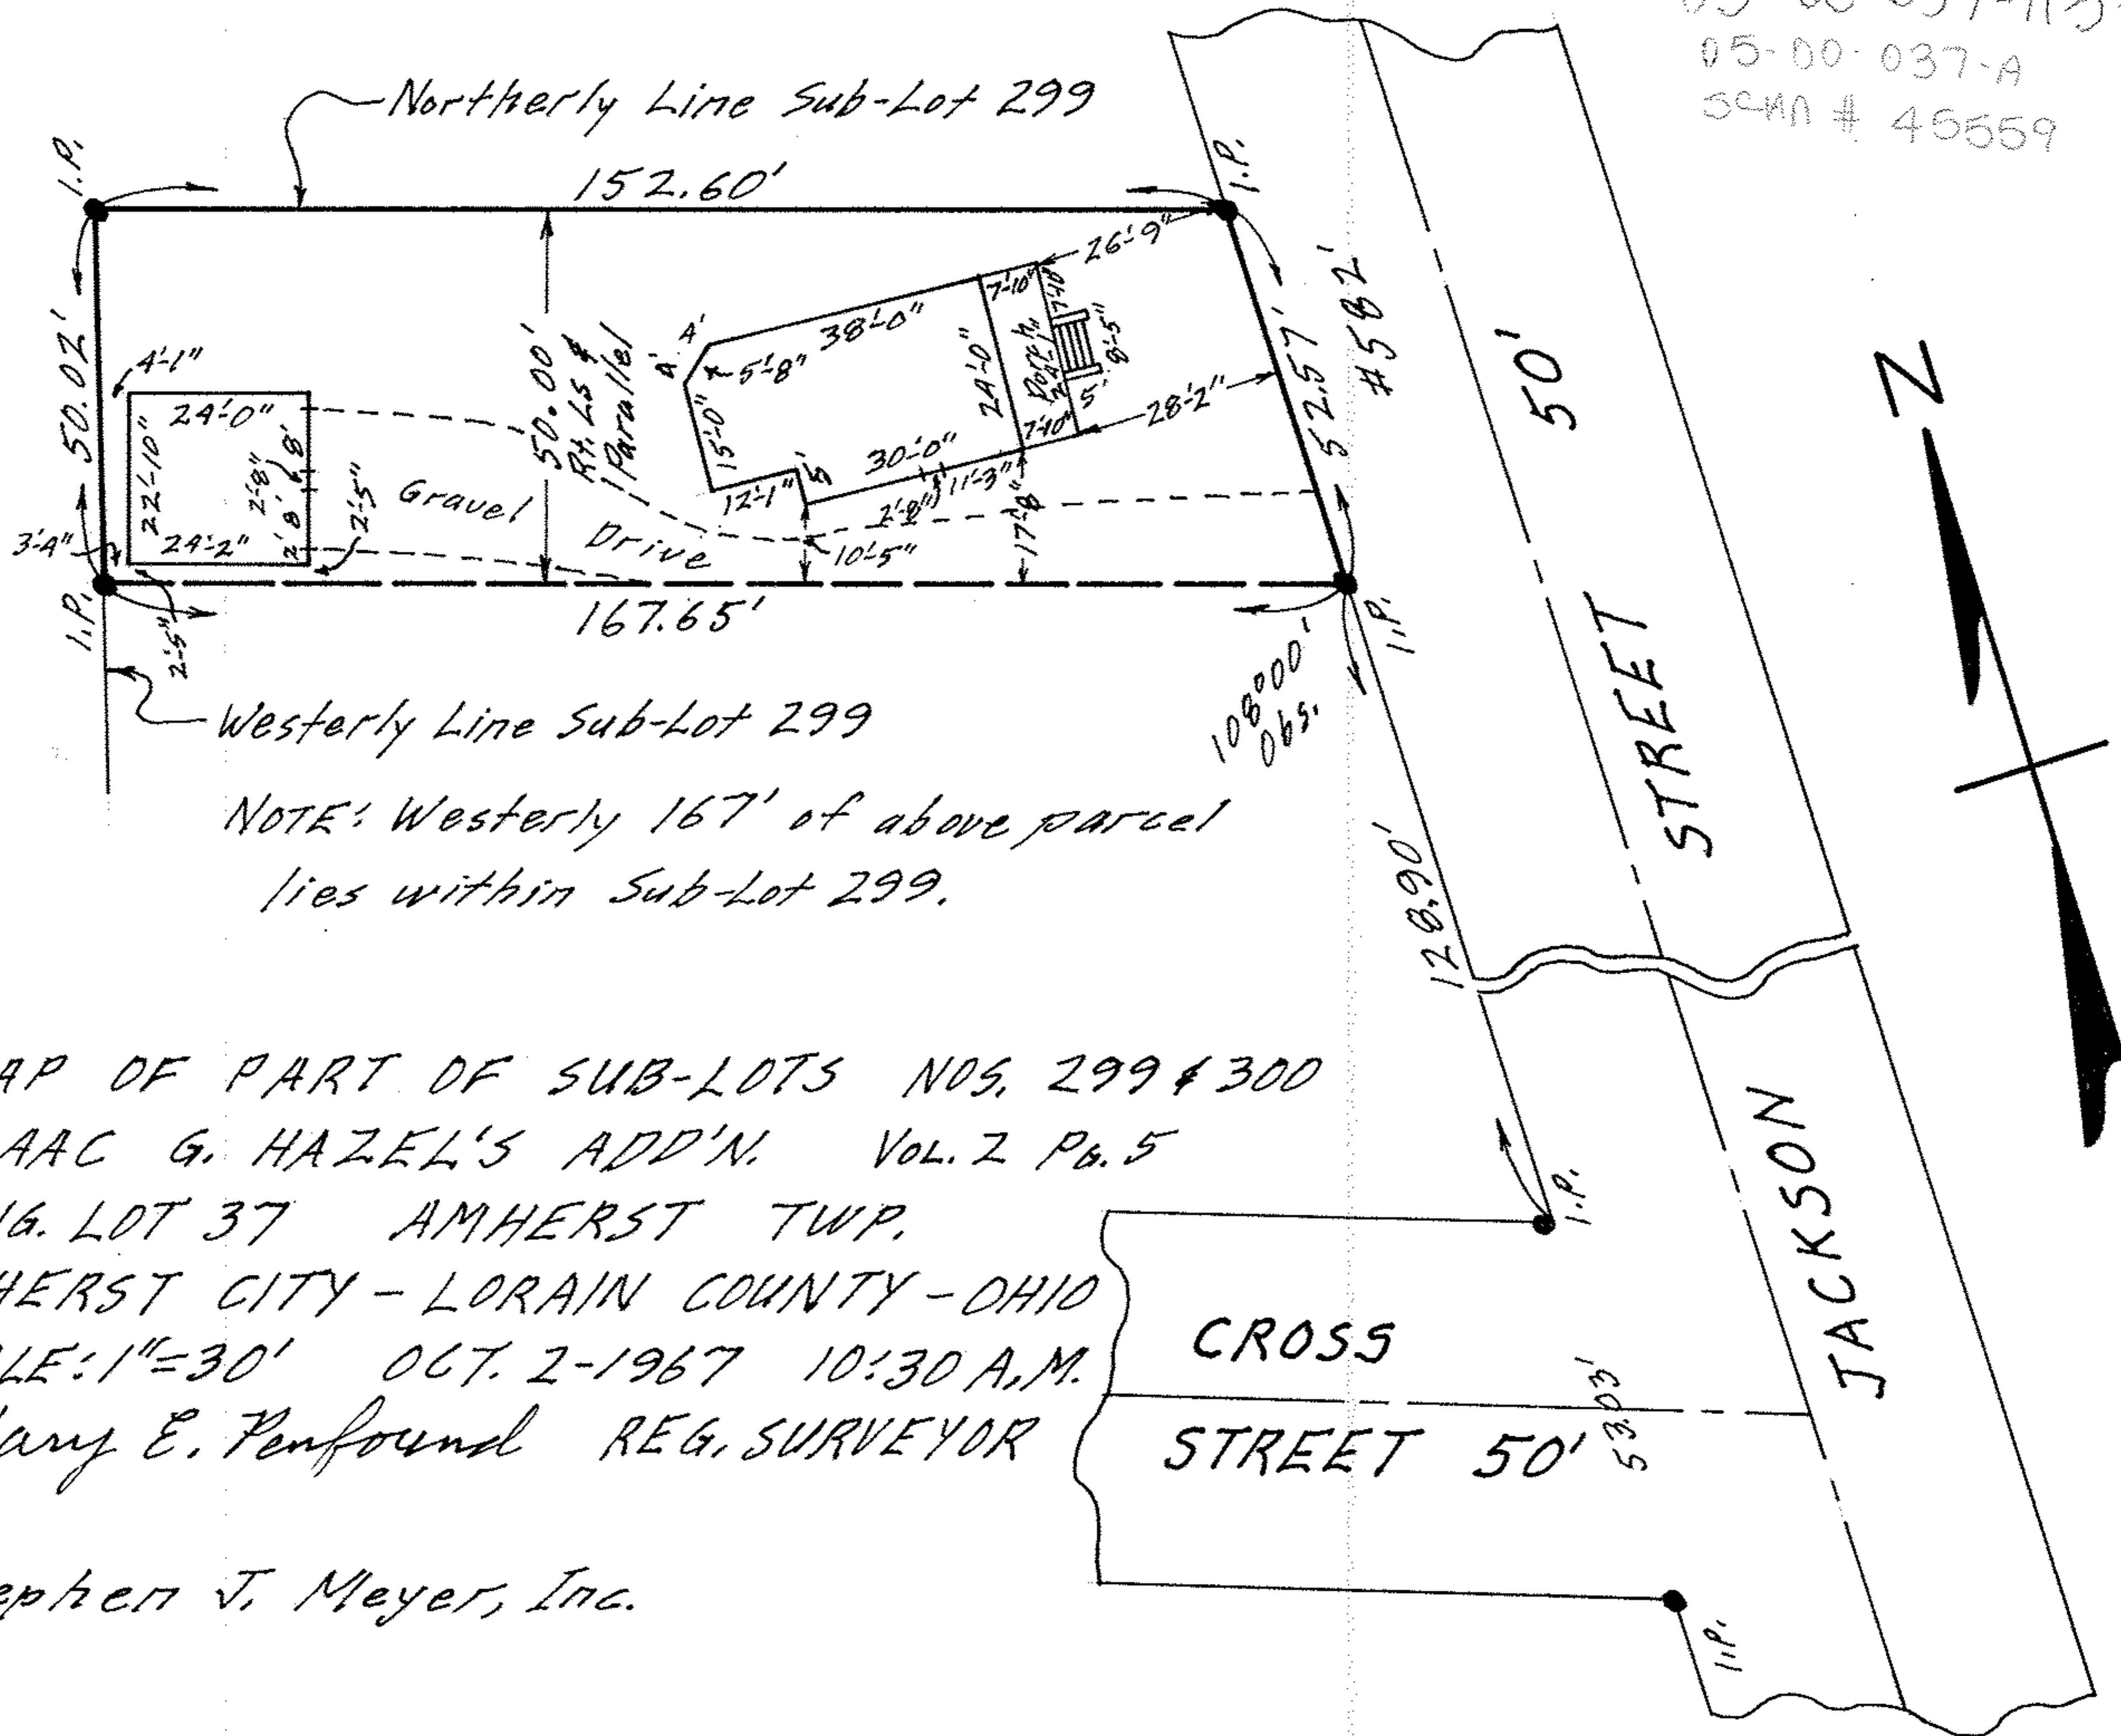 05-00-037-A
SCAN # 45559
Northerly Line Sub-Lot 299
152.60'
I.P.
I.P.
50.02'
4'-1"
24'-0"
22'-10"
2'-8"
8'
8'
2'
24'-2"
2'-5"
3'-4"
I.P.
2'-5"
Gravel
Drive
50.00'
Rt. Ls &
Parallel
4'
4'
5'-8"
38'-0"
15'-0"
12'-1"
5'
30'-0"
2'-8"
11'-3"
10'-5"
17'-8"
24'-0"
7'-10"
Porch
24'-1"
7'-10"
7'-10"
5'
8'-5"
26'-9"
28'-2"
52.57'
#582
167.65'
I.P.
108°00'
Obs.
Westerly Line Sub-Lot 299
NOTE: Westerly 167' of above parcel
lies within Sub-Lot 299.
128.90'
50'
STREET
JACKSON
N
I.P.
AP OF PART OF SUB-LOTS NOS. 299 & 300
AAC G. HAZEL'S ADD'N. VOL. 2 PG. 5
IG. LOT 37 AMHERST TWP.
HERST CITY - LORAIN COUNTY - OHIO
LE: 1"=30' OCT. 2-1967 10:30 A.M.
ary E. Penfound REG. SURVEYOR
ephen J. Meyer, Inc.
CROSS
STREET 50'
53.03'
I.P.